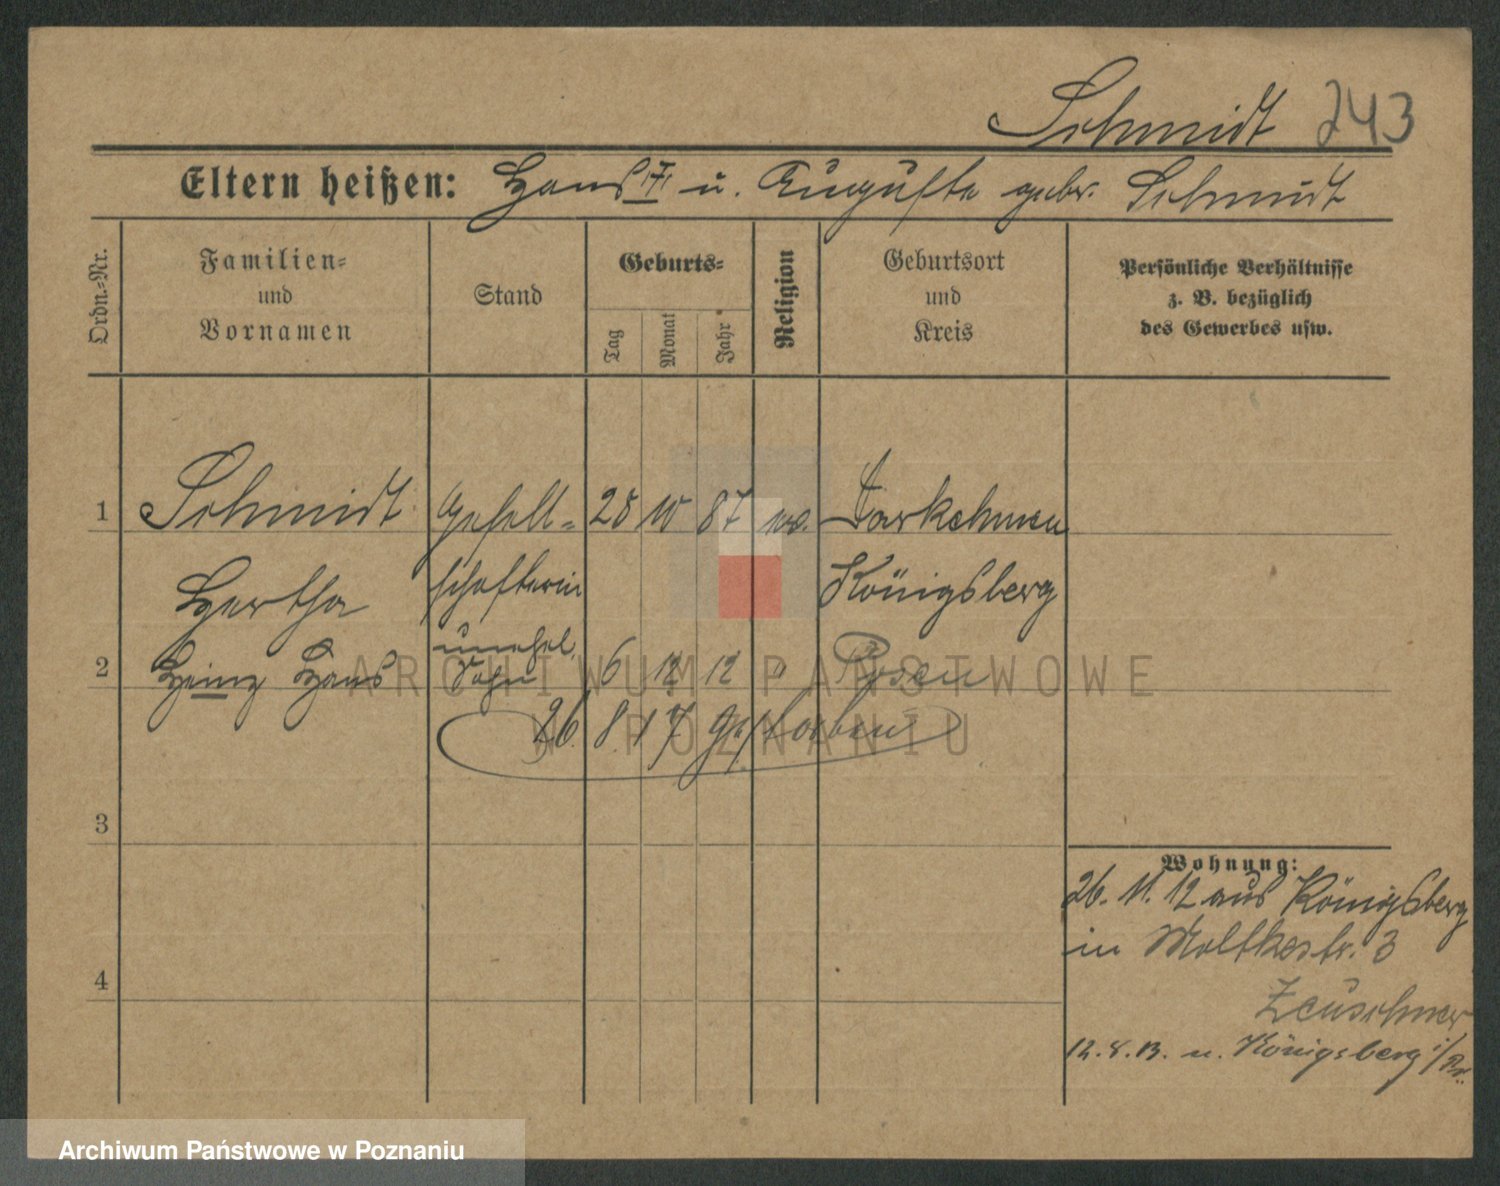 Schmidt 243
Eltern heißen: Hans † u. Auguste gebr. Schmidt
Ordn.-Nr.
Familien=
und
Vornamen
Stand
Geburts=
Tag
Monat
Jahr
Religion
Geburtsort
und
Kreis
Persönliche Verhältnisse
z. B. bezüglich
des Gewerbes usw.
1 Schmidt Gesell= 28 10 87 Darkehmen
Hertha schafterin Königsberg
unehel.
2 Heinz Hans Sohn 6 12 12 " Posen
26. 8. 17 gestorben
3
4
Wohnung:
26. 11. 12 aus Königsberg
in Moltkestr. 3
Zeuschner
12. 8. 13. n. Königsberg i/Pr.
ARCHIWUM PAŃSTWOWE
W POZNANIU
Archiwum Państwowe w Poznaniu